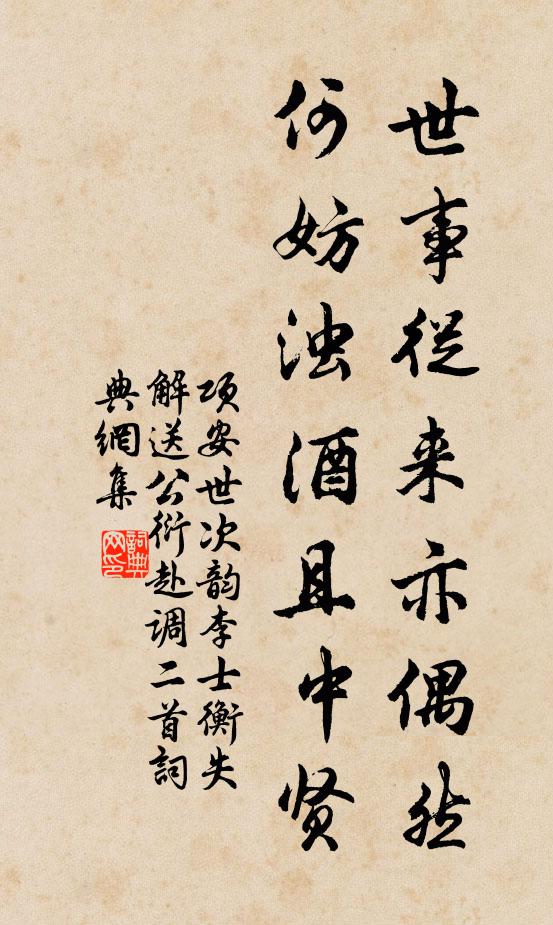 世事従来亦偶然
何妨浊酒且中贤
项安世次韵李士衡失
解送公衍赴调二首詞
典網集
詞典网印